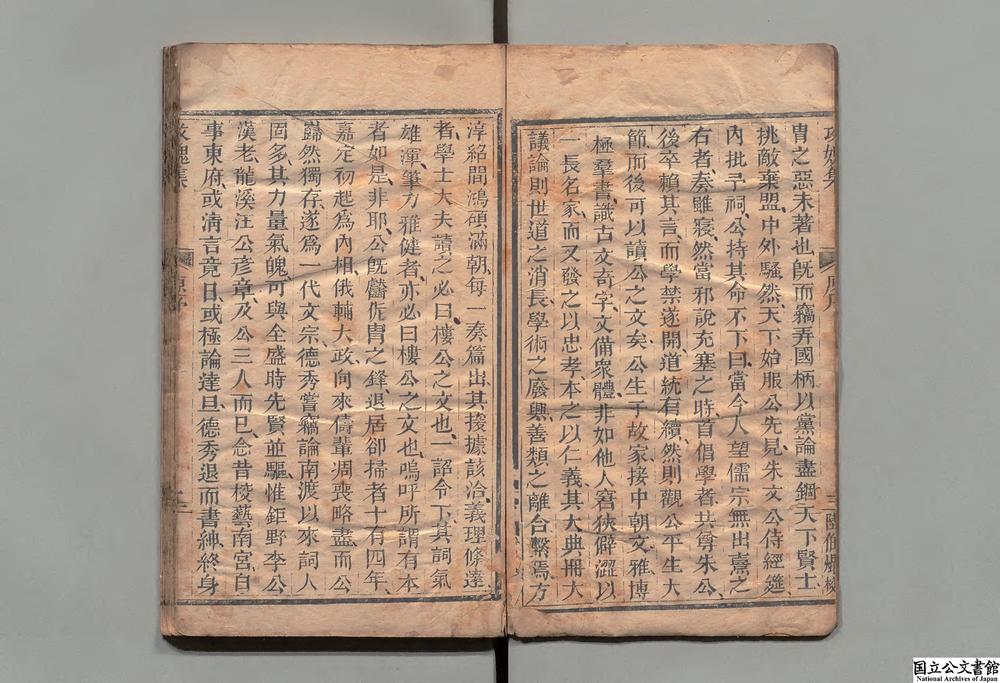 攻媿集
原序
冑之惡未著也旣而竊弄國柄以黨論盡錮天下賢士
挑敵棄盟中外騷然天下始服公先見朱文公侍經筵
內批予祠公持其命不下曰當今人望儒宗無出熹之
右者奏雖寢然當邪說充塞之時首倡學者共尊朱公
後卒賴其言而學禁遂開道統有續然則觀公平生大
節而後可以讀公之文矣公生于故家接中朝文雅博
極羣書識古文奇字文備衆體非如他人窘狹僻澀以
一長名家而又發之以忠孝本之以仁義其大典冊大
議論則世道之消長學術之廢興善類之離合繫焉方
淳紹間鴻碩滿朝每一奏篇出其援據該洽義理條達
者學士大夫讀之必曰樓公之文也一詔令下其詞氣
雄渾筆力雅健者亦必曰樓公之文也嗚呼所謂有本
者如是非耶公旣齟侂冑之鋒退居卻掃者十有四年
嘉定初起爲內相俄輔大政向來儔輩凋喪略盡而公
巋然獨存遂爲一代文宗德秀嘗竊論南渡以來詞人
固多其力量氣魄可與全盛時先賢並驅惟鉅野李公
漢老龍溪汪公彥章及公三人而已念昔校藝南宮自
事東府或清言竟日或極論達旦德秀退而書紳終身
攻媿集
原序
二
国立公文書館
National Archives of Japan